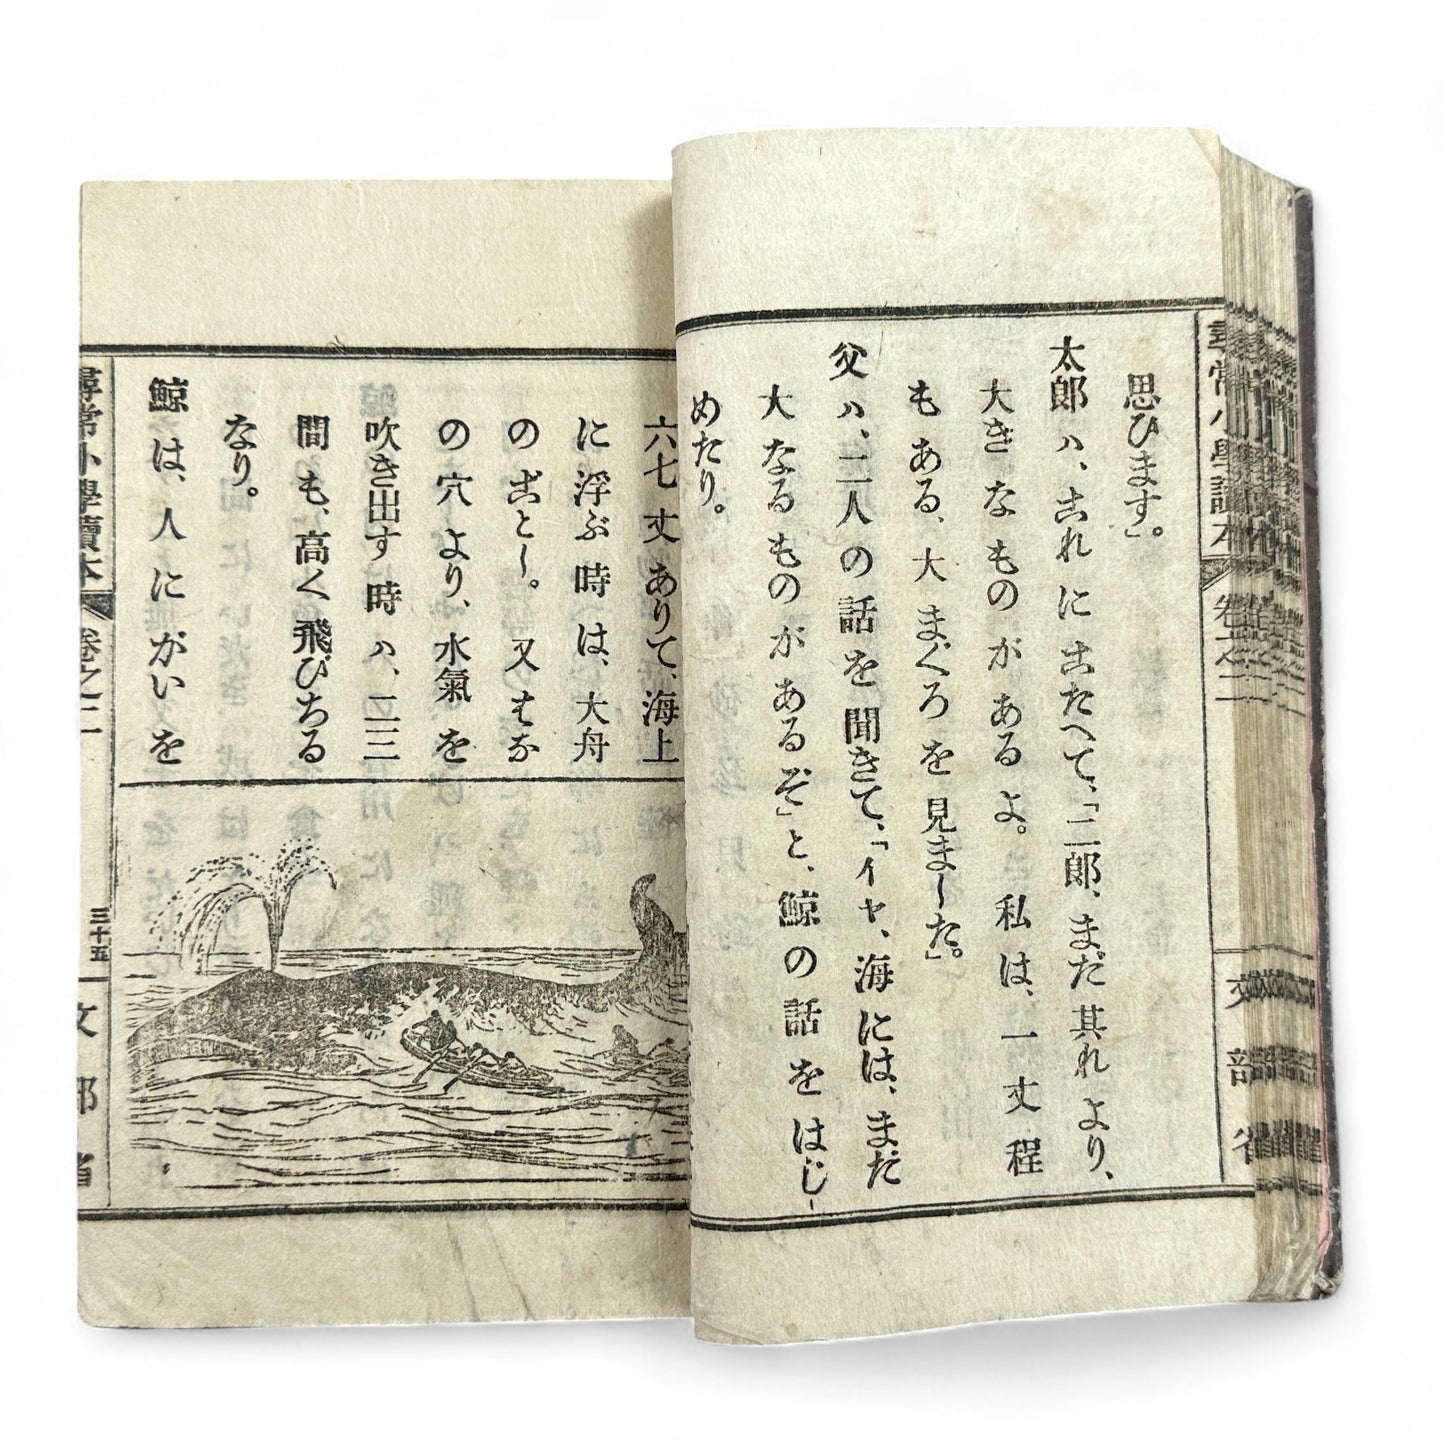 思ひます」。
太郎ハ、これにこたへて、「二郎、まだ其れより、
大きなものがあるよ。私は、一丈程
もある、大まぐろを見ました」。
父ハ、二人の話を聞きて、「イヤ、海には、まだ
大なるものがあるぞ」と、鯨の話をはじ
めたり。
六七丈ありて、海上
に浮ぶ時は、大舟
のごとし。又はな
の穴より、水氣を
吹き出す時ハ、二三
間も、高く飛びちる
なり。
鯨は、人にがいを
尋常小學讀本 卷之二 三十五 文部省